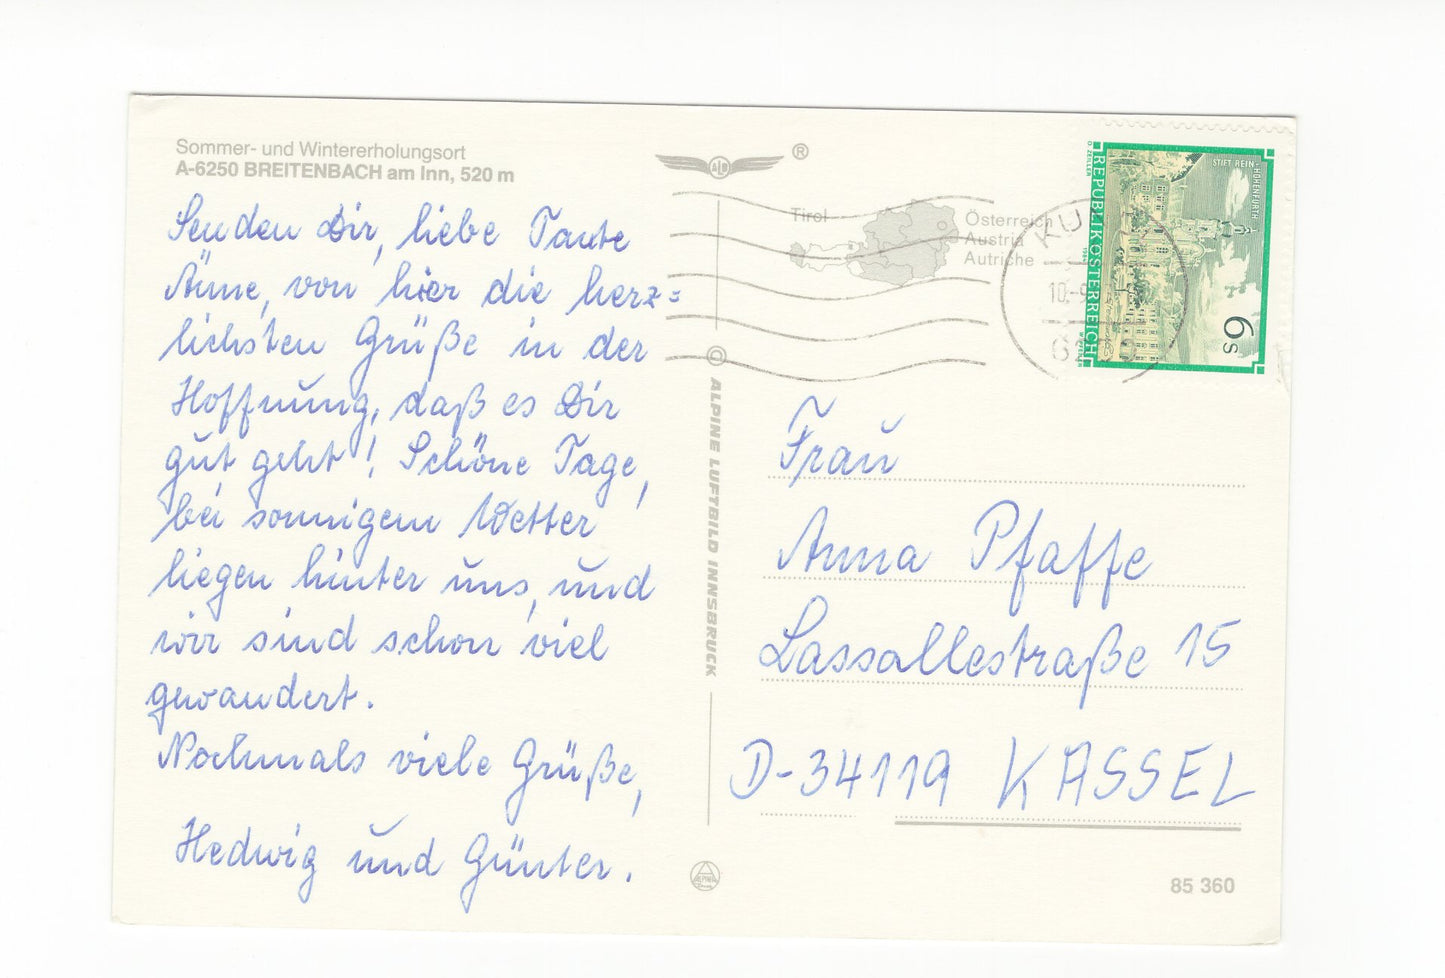 Sommer- und Wintererholungsort
A-6250 BREITENBACH am Inn, 520 m
Senden Dir, liebe Tante
Änne, von hier die herz=
lichsten Grüße in der
Hoffnung, daß es Dir
gut geht! Schöne Tage,
bei sonnigem Wetter
liegen hinter uns, und
wir sind schon viel
gewandert.
Nochmals viele Grüße,
Hedwig und Günter.
ALB
®
Tirol
Österreich
Austria
Autriche
© ALPINE LUFTBILD INNSBRUCK
KU
10.-9
REPUBLIK ÖSTERREICH
STIFT REIN-
HOHENFURTH
O. ZEILER
1984
6 s
Frau
Anna Pfaffe
Lassallestraße 15
D-34119 KASSEL
ALPINE
85 360